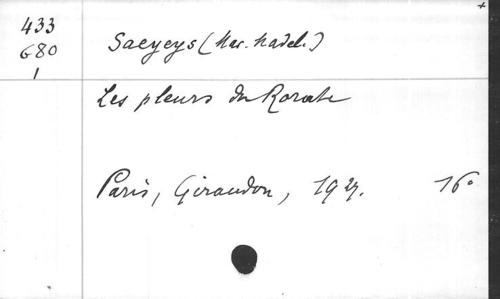 433
G80
1
Saeyeys (Mar. Madel.)
Les pleurs du Rorate
Paris, Giraudon, 1927. 16°